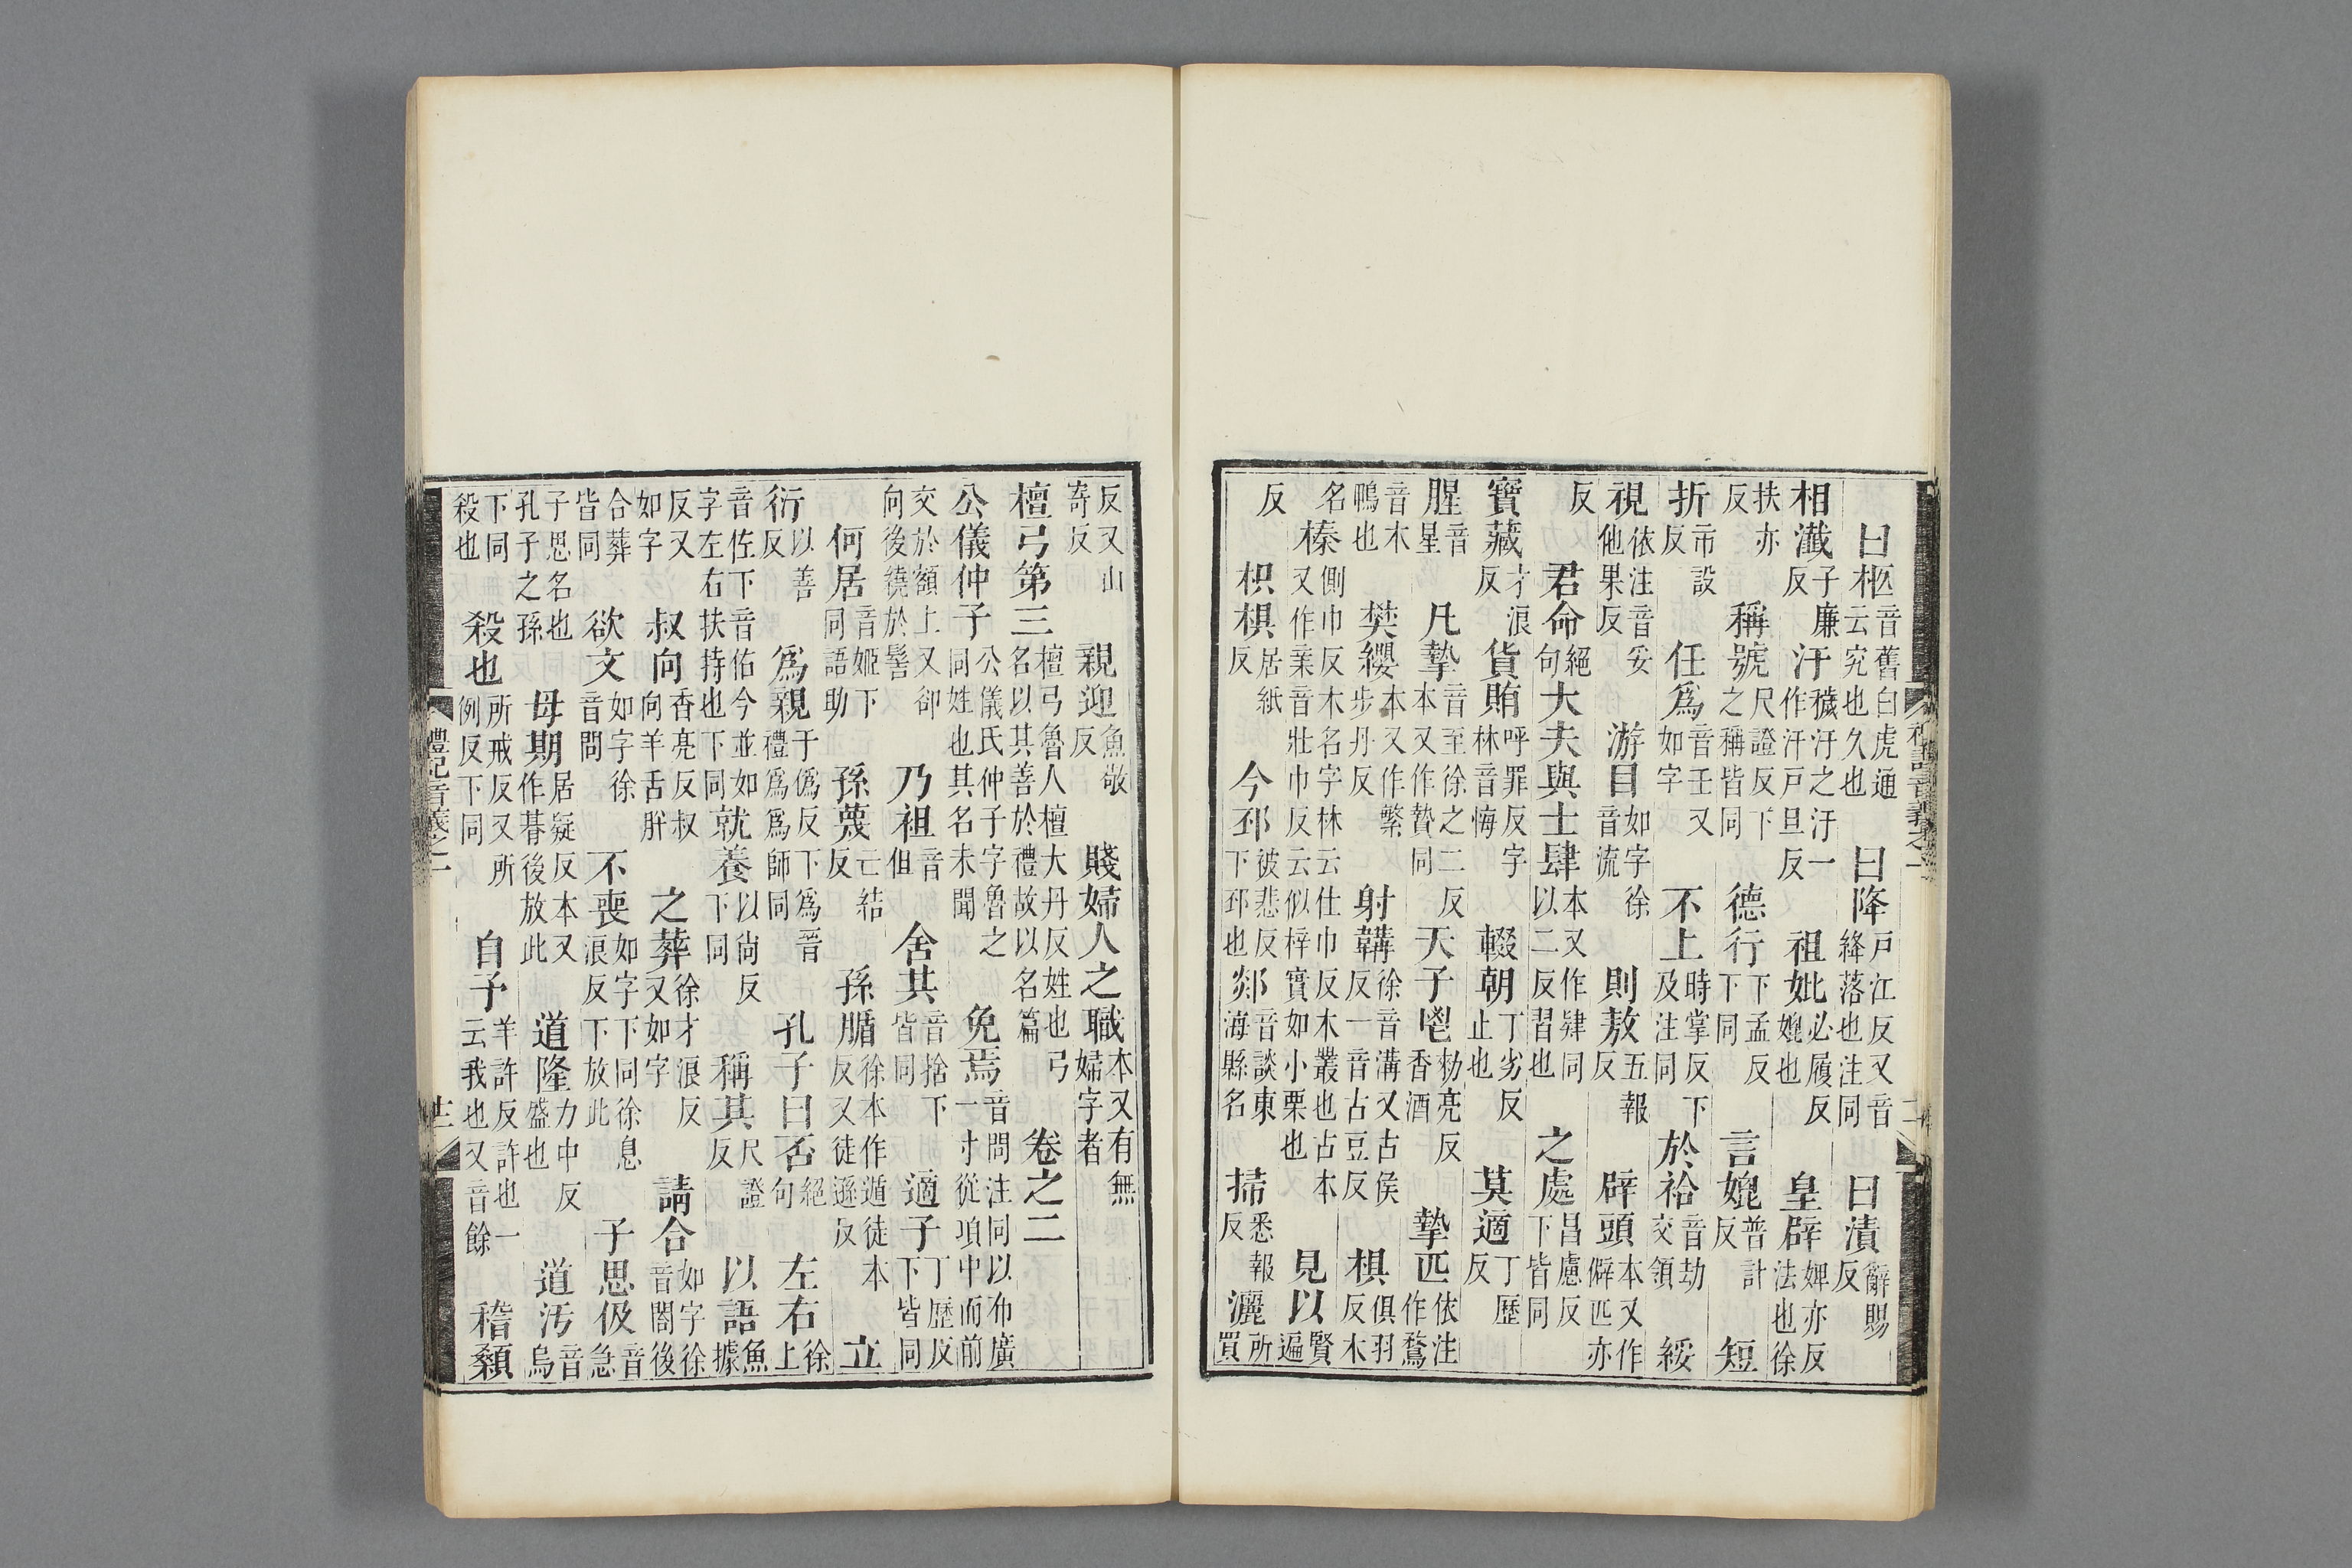 曰柩音舊白虎通云究也久也曰降戶江反又音絳落也注同曰漬辭賜反
相瀸子廉反汙穢汙之汙一作汗戶旦反祖妣必履反媲也皇辟婢亦反法也徐
扶亦反稱號尺證反下之稱皆同德行下孟反下同言媲普計反短
折市設反任爲音壬又如字不上時掌反下及注同於袷音劫交領綏
視依注音妥他果反游目如字徐音流則敖五報反辟頭本又作僻匹亦
反君命絕句大夫與士肄本又作肄同以二反習也之處昌慮反下皆同
寶藏才浪反貨賄呼罪反字林音悔輟朝丁劣反止也莫適丁歷反
腥音星凡摯音至徐之二反本又作贄同天子鬯勑亮反香酒摯匹依注作鶩
音木鴨也樊纓本又作繁步丹反射韝徐音溝又古侯反一音古豆反棋俱羽反木
名榛側巾反木名字林云仕巾反木叢也古本又作亲音壯巾反云似梓實如小栗也見以賢遍
反枳棋居紙反今邳被悲反下邳也郯音談東海縣名掃悉報反灑所買
反又山寄反親迎魚敬反賤婦人之職本又有無婦字者
檀弓第三檀弓魯人檀大丹反姓也弓名以其善於禮故以名篇卷之二
公儀仲子公儀氏仲子字魯之同姓也其名未聞免焉音問注同以布廣一寸從項中而前
交於額上又卻向後繞於髻乃祖音但舍其音捨下皆同適子丁歷反下皆同
何居音姬下同語助孫蔑亡結反孫腯徐本作遁徒本反又徒遜反立
衍以善反爲親于僞反下爲晉禮爲爲師同孔子曰否絕句左右徐上
音佐下音佑今並如字左右扶持也下同就養以尚反下同稱其尺證反以語魚據
反又如字叔向香亮反叔向羊舌肸之葬徐才浪反又如字請合如字徐音閤後
合葬皆同欲文如字徐音問不喪如字下同徐息浪反下放此子思伋音急
子思名也孔子之孫母期居疑反本又作朞後放此道隆力中反盛也道汚音烏
下同殺也殺也所戒反又所例反下同自予羊許反許也一云我也又音餘稽顙
禮記音義之一